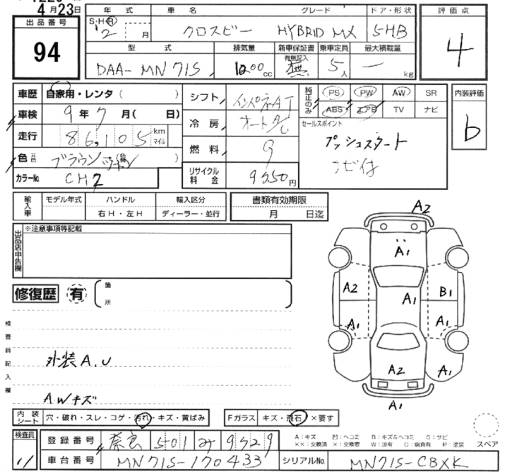 4月23日
出品番号
94
年式 車名 グレード ドア・形状
S・H・R 2年 月 クロスビー HYBRID MX 5HB
型式 排気量 新車保証書 乗車定員 最大積載量
DAA-MN71S 1000cc 有無記入 無 5人 ー kg
評価点
4
内装評価
b
車歴 自家用・レンタ
車検 9年7月(日)
走行 86,105 km マイル
色 ブラウンツートン
カラーNo CH2
シフト インパネAT
冷房 オートA/C
燃料 G
リサイクル料金 9550円
純正のみ
PS PW AW SR
ABS エアB TV ナビ
セールスポイント
プッシュスタート
ナビ付
輸入車 モデル年式 ハンドル 輸入区分
年 右H・左H ディーラー・並行
書類有効期限
月 日迄
出品店申告欄
※注意事項等記載
修復歴 有 箇所
検査員記入欄
外装A.U
AWキズ
A2
A1
A2 A1 B1
A1 A1
A1
A2
内装シート 穴・破れ・スレ・コゲ・汚れ・キズ・黄ばみ
Fガラス キズ・飛石・×要す
スペア
検査員
登録番号 奈良 501 み 9529
車台番号 MN71S-170433
シリアルNo. MN71S-CBXK
A：キズ 凹：ヘコミ B：キズ&ヘコミ S：サビ
××：交換済 ×：交換 W：波有 C：腐食有 P：塗装